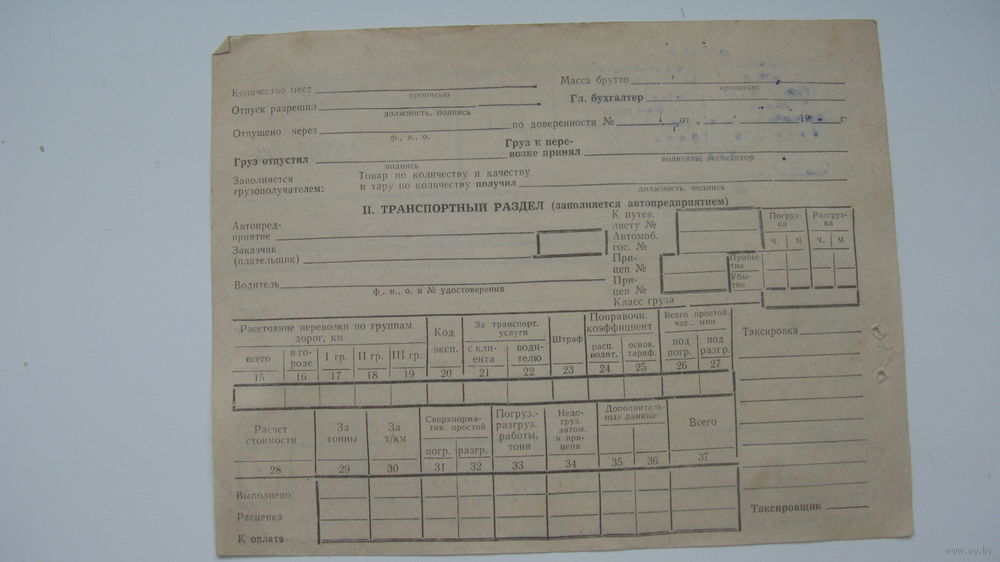 Количество мест Масса брутто
прописью прописью
Отпуск разрешил Гл. бухгалтер
должность, подпись
Отпущено через по доверенности № от " " 19 г.
ф., и., о.
Груз отпустил Груз к пере-
возке принял
подпись водитель, экспедитор
Заполняется грузополучателем: Товар по количеству и качеству
и тару по количеству получил
должность, подпись
II. ТРАНСПОРТНЫЙ РАЗДЕЛ (заполняется автопредприятием)
Автопред-
приятие
Заказчик
(плательщик)
Водитель
ф., и., о. и № удостоверения
К путев.
листу №
Автомоб.
гос. №
При-
цеп №
При-
цеп №
Класс груза
Погруз-
ка
Разгруз-
ка
ч. м ч. м
Прибы-
тие
Убы-
тие
Расстояние перевозки по группам
дорог, км
всего в го-
роде I гр. II гр. III гр.
Код
эксп.
За транспорт.
услуги
с кли-
ента
води-
телю
Штраф
Поправочн.
коэффициент
расц.
водит.
основ.
тариф.
Всего простой,
час., мин.
под
погр.
под
разгр.
15 16 17 18 19 20 21 22 23 24 25 26 27
Таксировка
Расчет
стоимости
За
тонны
За
т/км
Сверхнорма-
тив. простой
погр. разгр.
Погруз.-
разгруз.
работы,
тонн
Недо-
груз.
автом.
и при-
цепа
Дополнитель-
ные данные
Всего
28 29 30 31 32 33 34 35 36 37
Выполнено
Расценка
К оплате
Таксировщик
www.ay.by